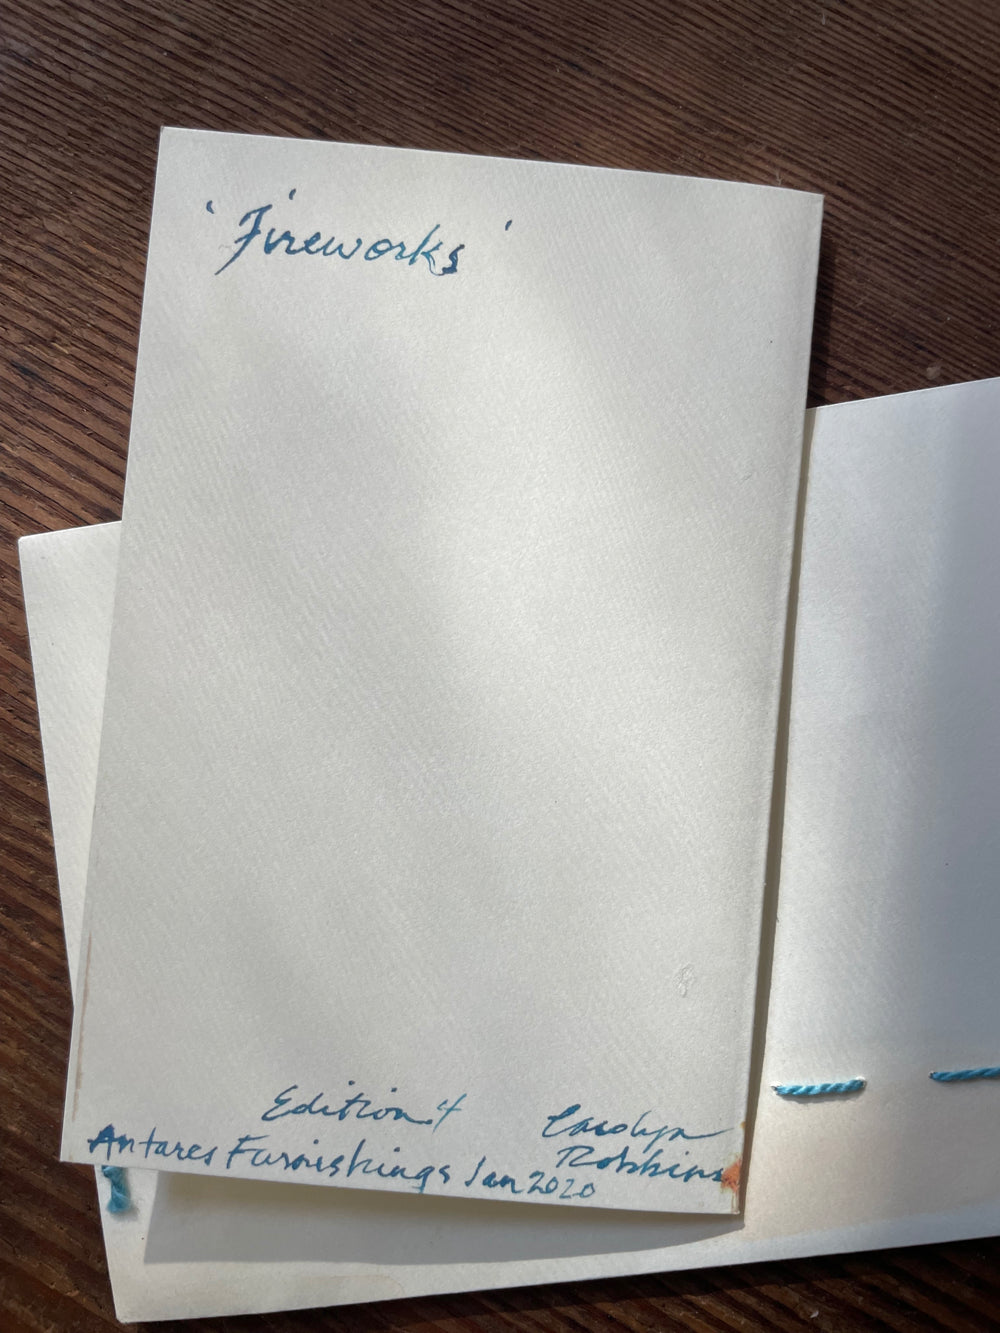 'Fireworks'
Edition 4
Carolyn
Antares Furnishings Jan 2020
Robbins